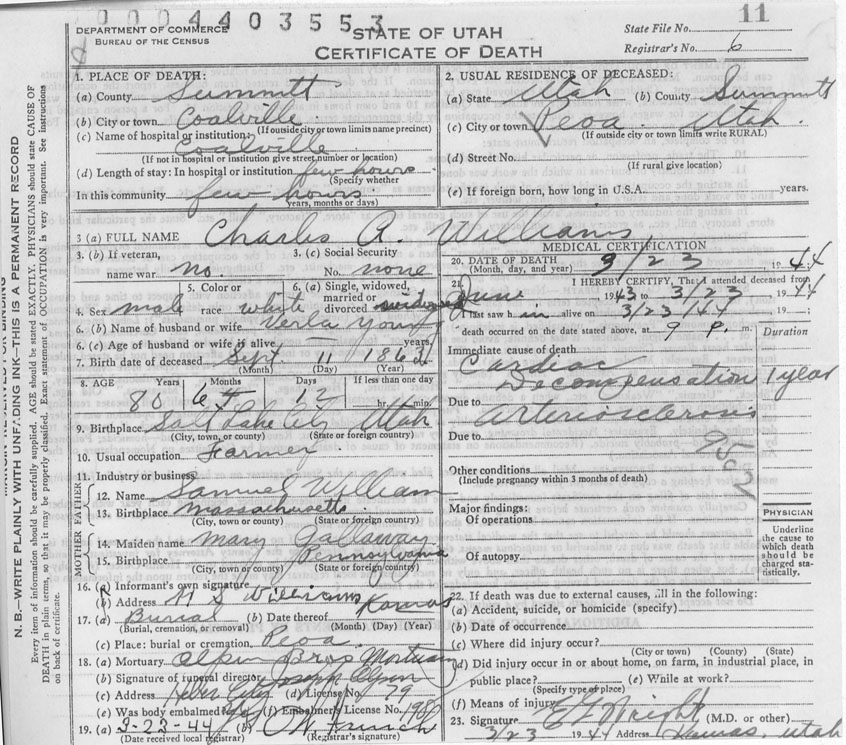 0 0 0 4 4 0 3 5 5 3
11
DEPARTMENT OF COMMERCE
BUREAU OF THE CENSUS
STATE OF UTAH
CERTIFICATE OF DEATH
State File No.
Registrar's No. 6
N. B.—WRITE PLAINLY WITH UNFADING INK—THIS IS A PERMANENT RECORD
Every item of information should be carefully supplied. AGE should be stated EXACTLY. PHYSICIANS should state CAUSE OF
DEATH in plain terms, so that it may be properly classified. Exact statement of OCCUPATION is very important. See instructions
on back of certificate.
1. PLACE OF DEATH:
(a) County Summitt
(b) City or town Coalville
(If outside city or town limits name precinct)
(c) Name of hospital or institution:
Coalville
(If not in hospital or institution give street number or location)
(d) Length of stay: In hospital or institution few hours
(Specify whether
In this community few hours
years, months or days)
2. USUAL RESIDENCE OF DECEASED:
(a) State Utah (b) County Summitt
(c) City or town Peoa. Utah.
(If outside city or town limits write RURAL)
(d) Street No.
(If rural give location)
(e) If foreign born, how long in U.S.A. years.
3 (a) FULL NAME Charles A. Williams
3. (b) If veteran,
name war no.
3. (c) Social Security
No. none
4. Sex male
5. Color or
race white
6. (a) Single, widowed,
married or
divorced widowed
6. (b) Name of husband or wife Verla Young
6. (c) Age of husband or wife if alive — years
7. Birth date of deceased Sept. 11 1863
(Month) (Day) (Year)
8. AGE Years Months Days If less than one day
80 6 12 hr. min.
9. Birthplace Salt Lake City Utah
(City, town, or county) (State or foreign country)
10. Usual occupation Farmer
11. Industry or business
FATHER
12. Name Samuel William
13. Birthplace Massachusetts
(City, town or county) (State or foreign country)
MOTHER
14. Maiden name Mary Gallaway
15. Birthplace Pennsylvania
(City, town or county) (State or foreign country)
16. (a) Informant's own signature
(b) Address Williams Kamas
17. (a) Burial (b) Date thereof
(Burial, cremation, or removal) (Month) (Day) (Year)
(c) Place: burial or cremation, Peoa.
18. (a) Mortuary Olpin Bros Mortuary
(b) Signature of funeral director Joseph Olpin
(c) Address Heber City (d) License No. 79
(e) Was body embalmed? (f) Embalmer's License No.
19. (a) 3-23-44 (b)
(Date received local registrar) (Registrar's signature)
MEDICAL CERTIFICATION
20. DATE OF DEATH 3/23, 1944
(Month, day, and year)
21. I HEREBY CERTIFY, That I attended deceased from
June, 1943 to 3/23 1944
I last saw h im alive on 3/23/44 19 ;
death occurred on the date stated above, at 9 P. m.
Duration
Immediate cause of death
Cardiac
Decompensation 1 year
Due to Arteriosclerosis
Due to
Other conditions
(Include pregnancy within 3 months of death)
Major findings:
Of operations
Of autopsy
PHYSICIAN
Underline
the cause to
which death
should be
charged sta-
tistically.
22. If death was due to external causes, fill in the following:
(a) Accident, suicide, or homicide (specify)
(b) Date of occurrence
(c) Where did injury occur?
(City or town) (County) (State)
(d) Did injury occur in or about home, on farm, in industrial place, in
public place? (e) While at work?
(Specify type of place)
(f) Means of injury
23. Signature Wright (M.D. or other)
3/23 1944 Address Kamas, Utah